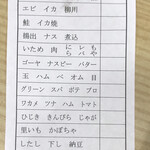 エビ イカ 棚所
鮭 イカ焼
鶏出 ナス 煮込
いため 肉 にら レバ もや
ゴーヤ ナスピー バター
玉 ハム ベ オム 目
グリーン スパ ポテ プロ
ワカメ ツナ ハム トマト
ひじき きんぴら じゃが
里いも かぼちゃ
したし 下し 納豆